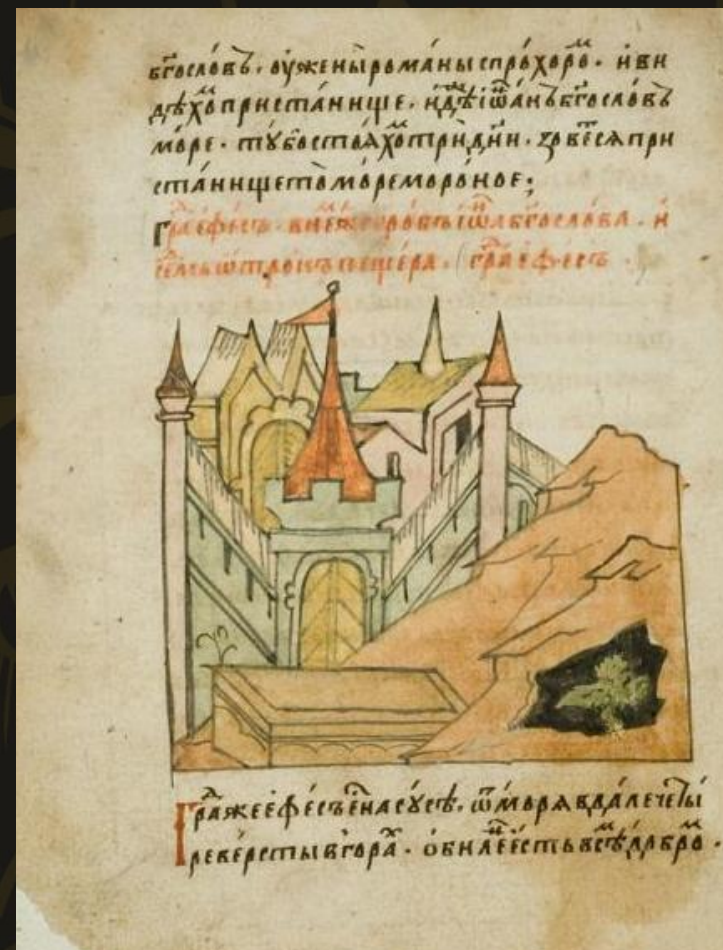 бг҃ословъ. оу҆ жены̀ рома́ны с про́хоро ͨ. и҆ ви
дѣ́хо ͨ приста́нище. и҆дѣ́ же і҆ѡа́нъ бг҃осло́въ
мо́ре. тꙋ̀ бо стоя́хо ͨ трѝ дн҃и. зове́ся при
ста́нище то̀ мо́ре мо́роное;
Гра ефе́съ. в не́ же гро́бъ і҆ѡ҃а бг҃осло́ва. и҆
се́мь ѿтрокъ пеще́ра. гра́ е҆фе́съ.
Гра́ же е҆фе́съ е҆́ на сꙋ́сѣ. ѿ мо́ря вдалечѐ четы́
ре ве́рсты в гора́. ѻ҆би́ле́ е҆́сть всѣ́ добро́.